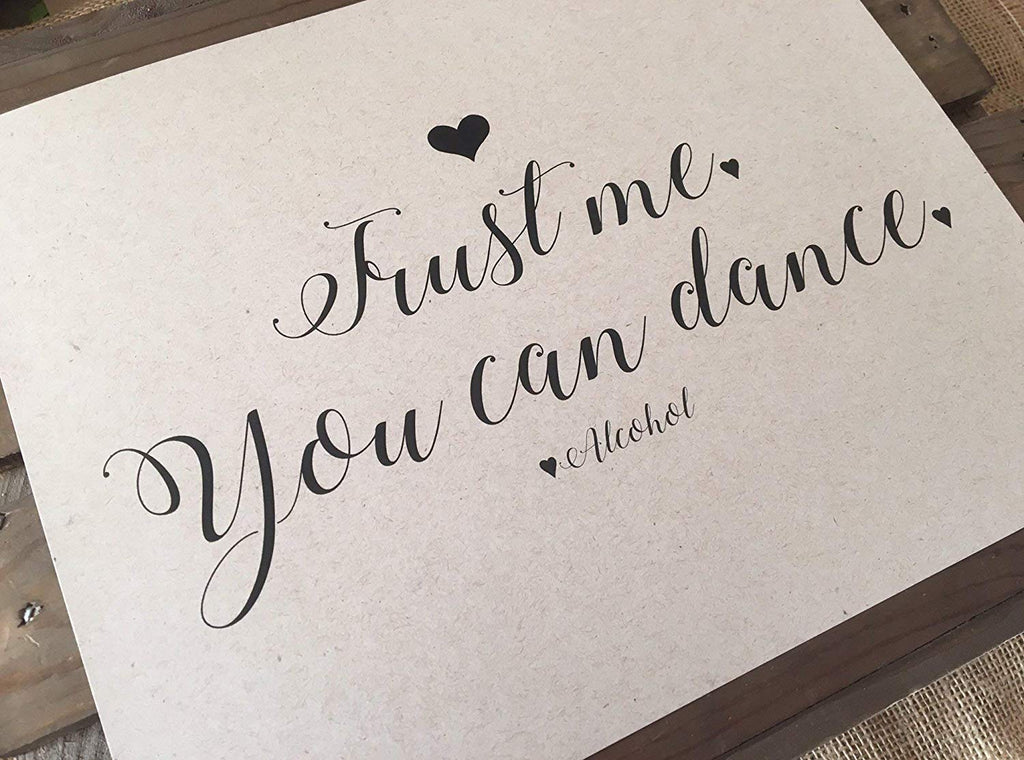 Trust me.
You can dance.
♥Alcohol